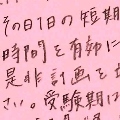 その1日の短期
時間を有効に
是非計画を立
さい。受験期に